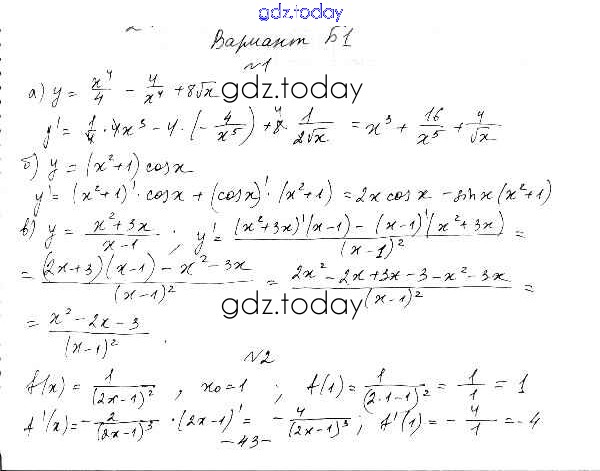 gdz.today
Вариант Б1
№1
gdz.today
а) y = x⁴/4 − 4/x⁴ + 8√x
y' = 1/4 · 4x³ − 4 · (− 4/x⁵) + 8 · 1/(2√x) = x³ + 16/x⁵ + 4/√x
б) y = (x²+1) cosx
y' = (x²+1)' · cosx + (cosx)' · (x²+1) = 2x cosx − sinx (x²+1)
в) y = (x²+3x)/(x−1) ; y' = ((x²+3x)'(x−1) − (x−1)'(x²+3x))/(x−1)² =
= ((2x+3)(x−1) − x² − 3x)/(x−1)² = (2x² − 2x + 3x − 3 − x² − 3x)/(x−1)² =
gdz.today
= (x² − 2x − 3)/(x−1)²
№2
f(x) = 1/(2x−1)² , x₀=1 ; f(1) = 1/(2·1−1)² = 1/1 = 1
f'(x) = − 2/(2x−1)³ · (2x−1)' = − 4/(2x−1)³ ; f'(1) = − 4/1 = −4
−43−
gdz.today